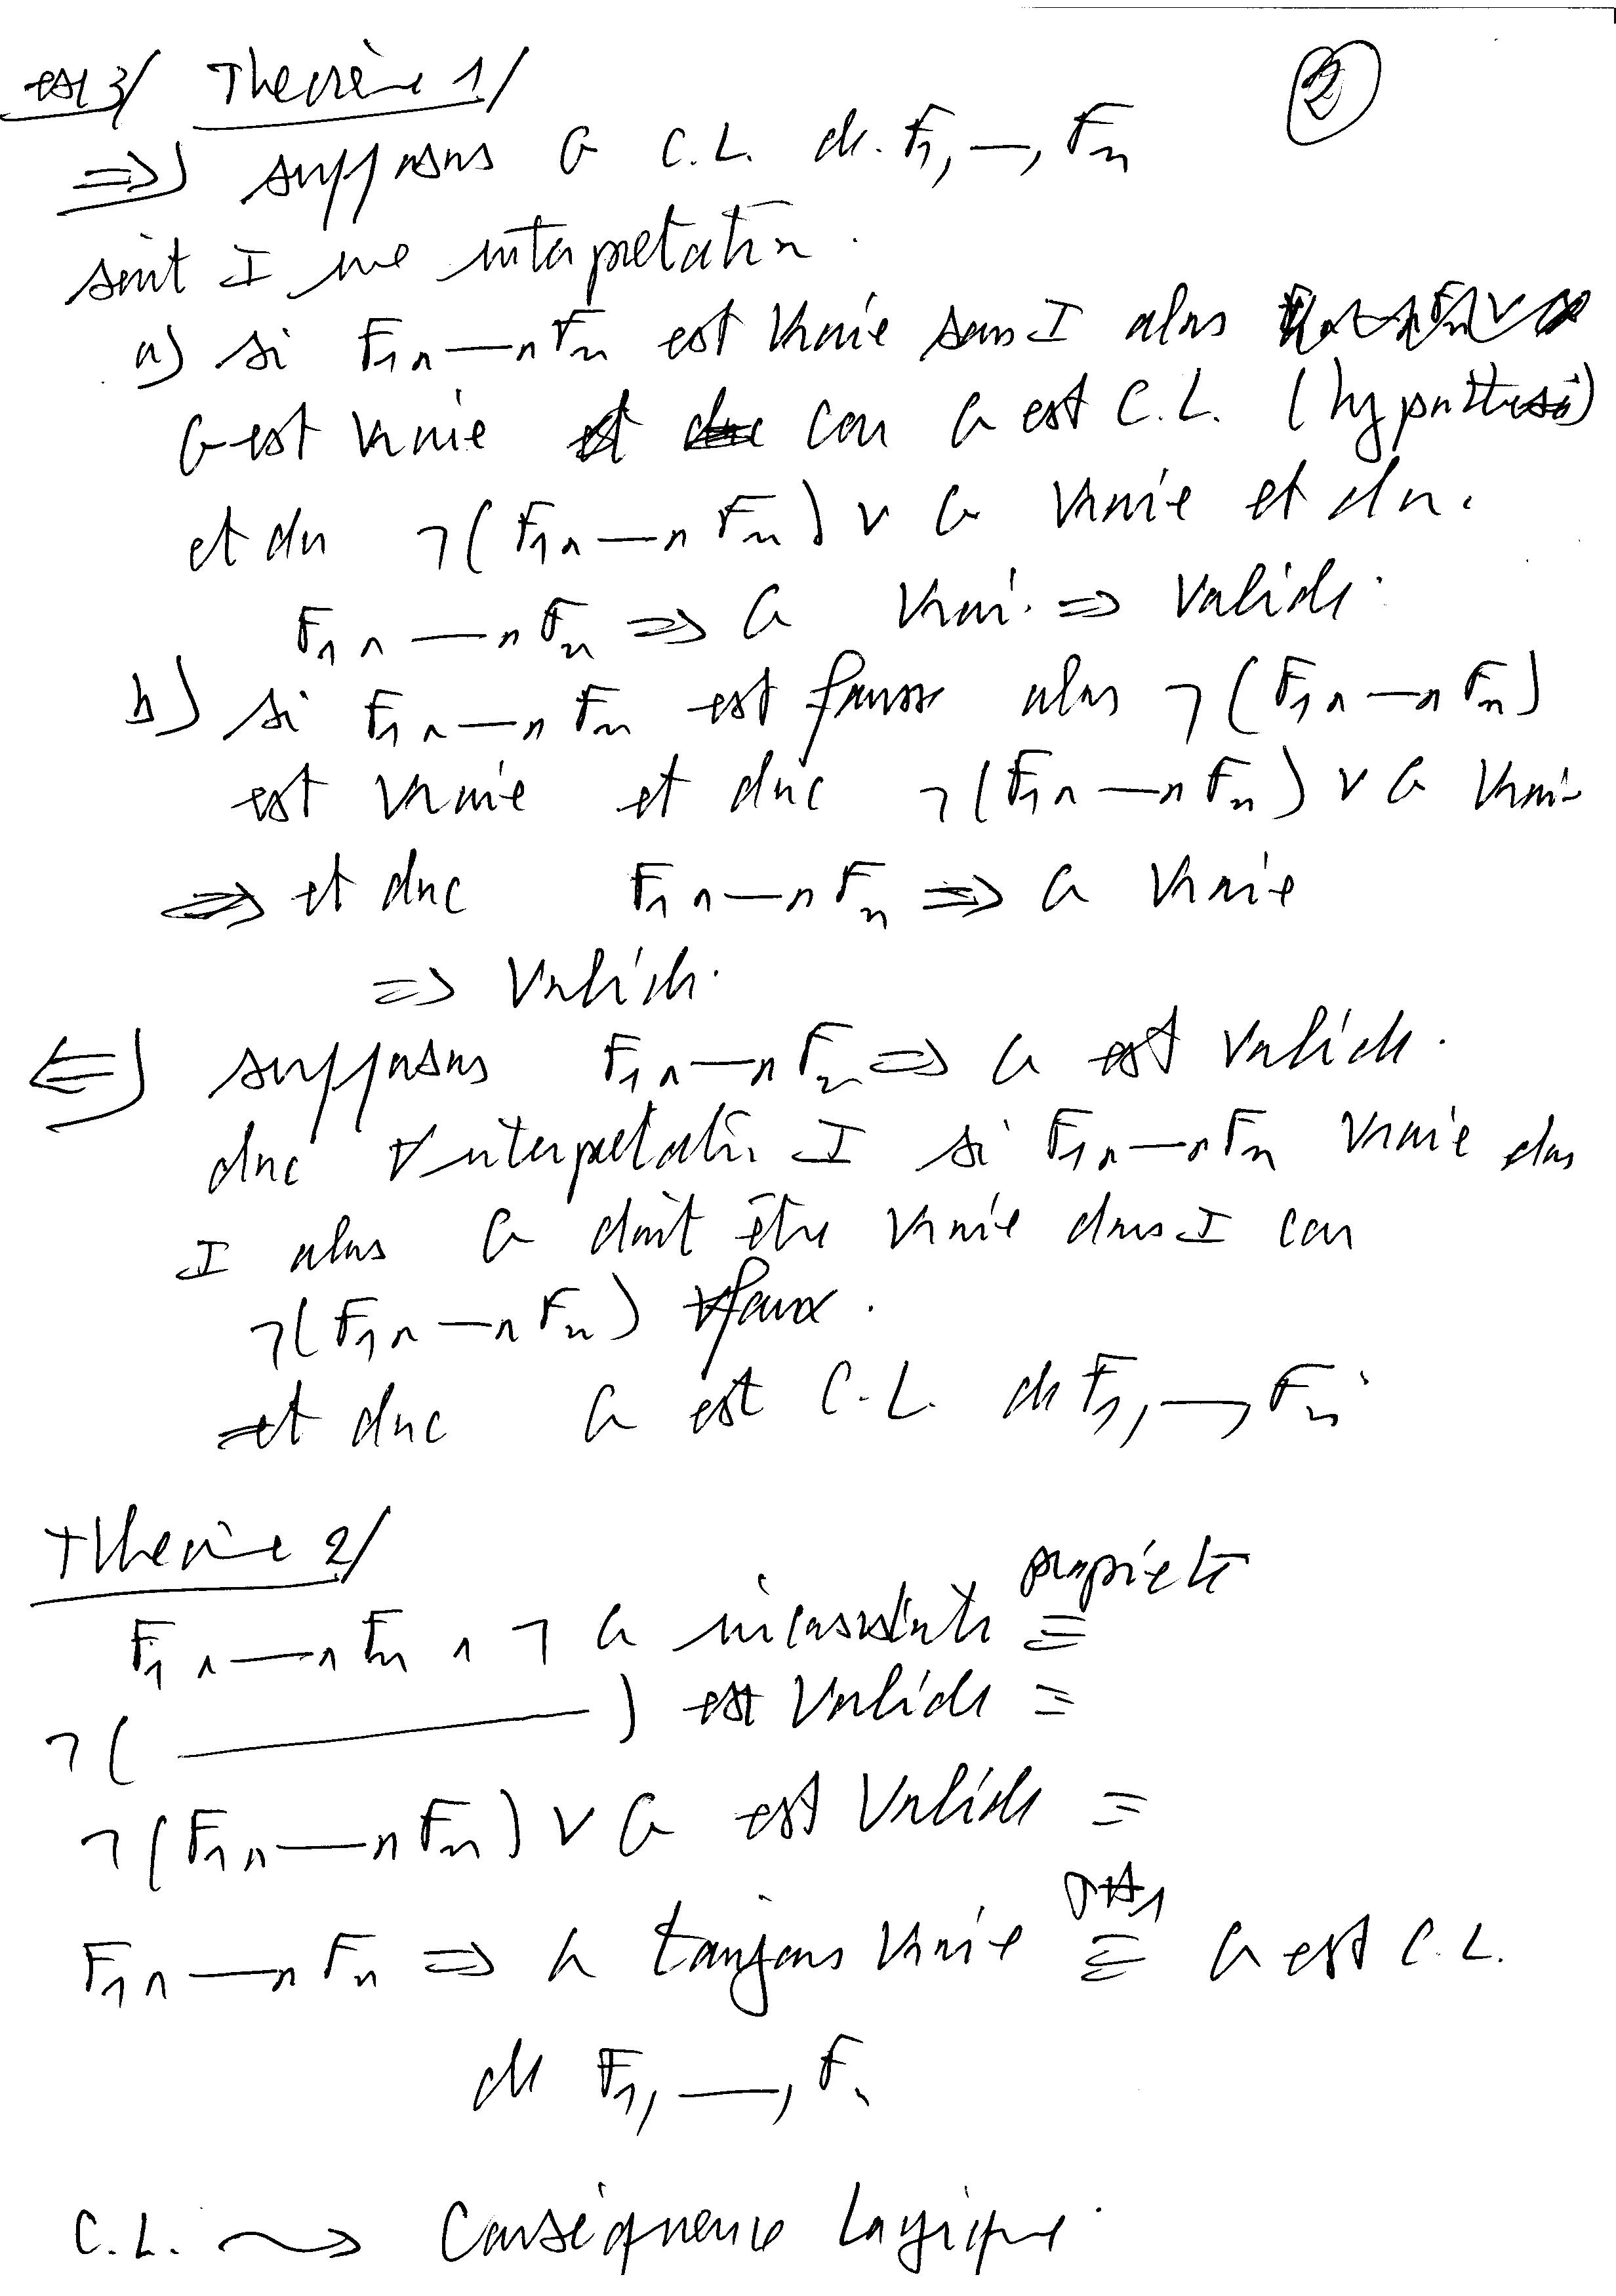 ex 3/ Theorème 1/ ②
⇒) supposons G C.L. de F1, —, Fn
soit I une interpretation.
a) si F1 ∧ — ∧ Fn est vraie dans I alors
G est vraie car G est C.L. (hypothèse)
et donc ¬(F1 ∧ — ∧ Fn) ∨ G vraie et donc
F1 ∧ — ∧ Fn ⇒ G vrai. ⇒ valide.
b) si F1 ∧ — ∧ Fn est fausse alors ¬(F1 ∧ — ∧ Fn)
est vraie et donc ¬(F1 ∧ — ∧ Fn) ∨ G vrai
⇒ et donc F1 ∧ — ∧ Fn ⇒ G vraie
⇒ valide.
⇐) supposons F1 ∧ — ∧ Fn ⇒ G est valide.
donc ∀ interpretation I si F1 ∧ — ∧ Fn vraie dans
I alors G doit être vraie dans I car
¬(F1 ∧ — ∧ Fn) faux.
et donc G est C.L. de F1, —, Fn.
Theorème 2/
propriété
F1 ∧ — ∧ Fn ∧ ¬ G inconsistante ≡
¬( ——— ) est valide ≡
¬(F1 ∧ — ∧ Fn) ∨ G est valide ≡
F1 ∧ — ∧ Fn ⇒ G toujours vraie ≡ G est C.L.
de F1, —, Fn
C.L. ⇝ Conséquence Logique.